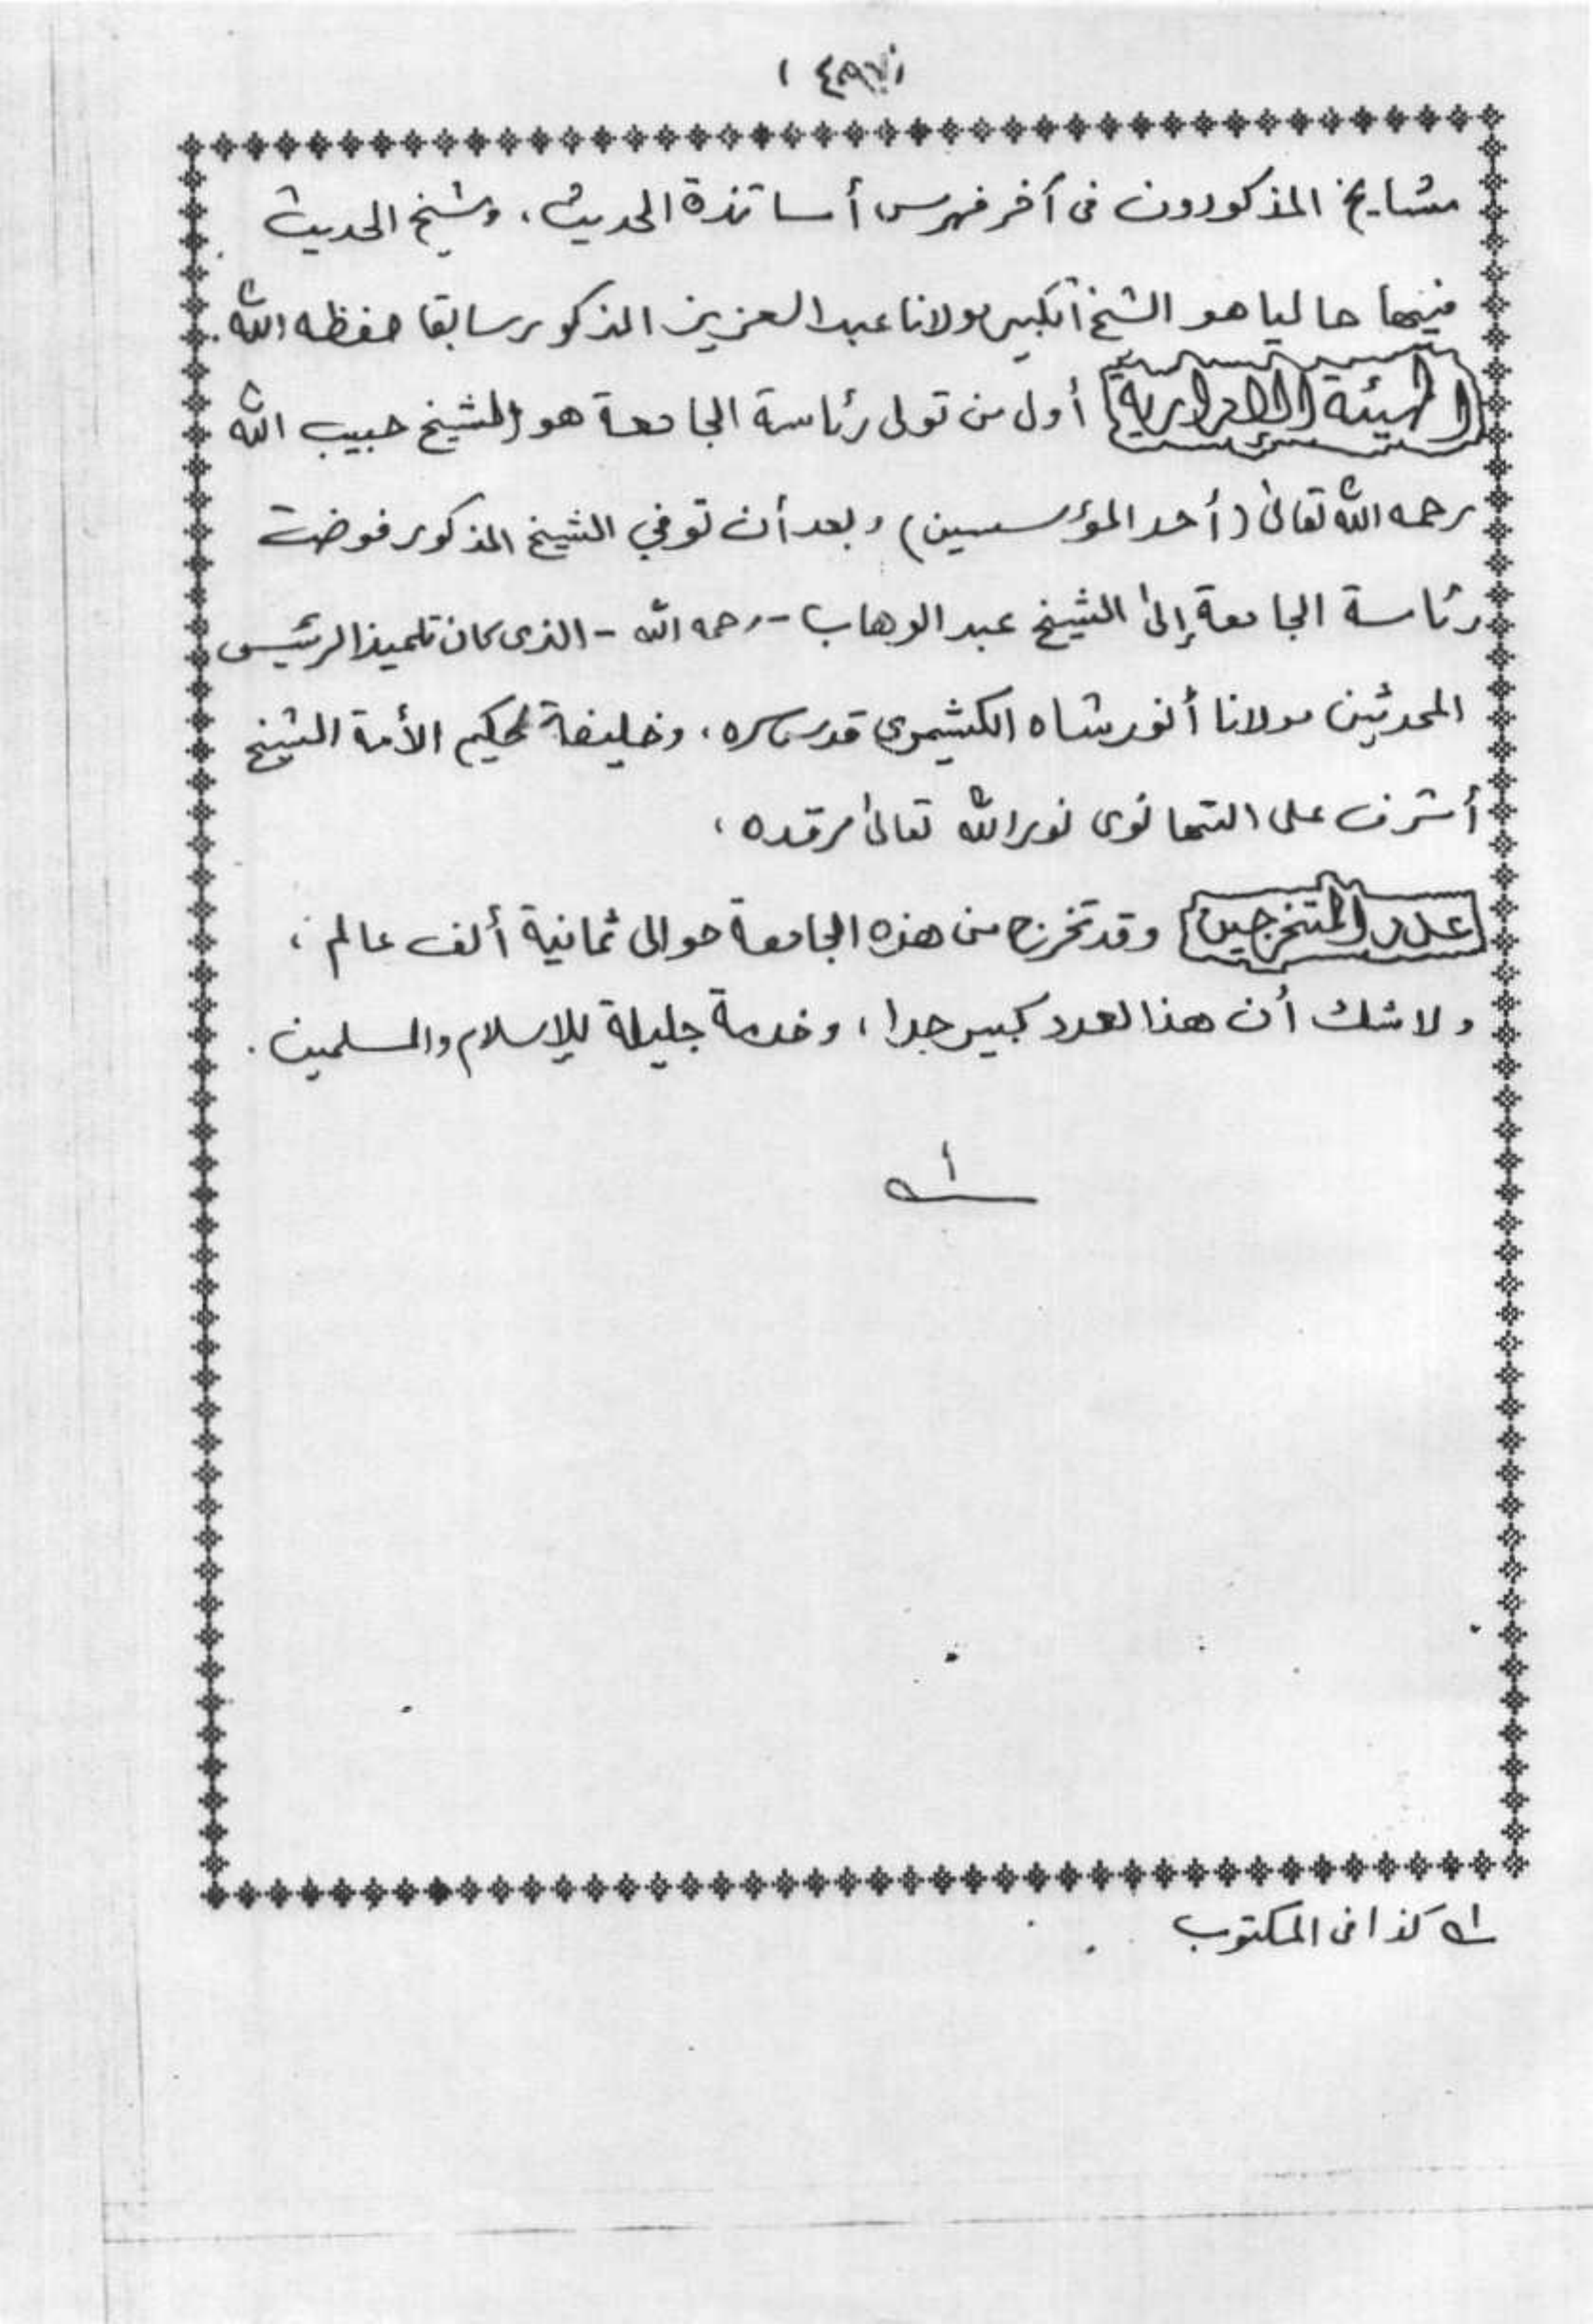 مشايخ المذكورون في آخر فهرس أساتذة الحديث، وشيخ الحديث
فيها حاليا هو الشيخ الكبير مولانا عبد العزيز المذكور سابقا حفظه الله.
الهيئة الإدارية أول من تولى رئاسة الجامعة هو الشيخ حبيب الله
رحمه الله تعالى (أحد المؤسسين) وبعد أن توفي الشيخ المذكور فوضت
رئاسة الجامعة إلى الشيخ عبد الوهاب - رحمه الله - الذي كان تلميذا لرئيس
المحدثين مولانا أنور شاه الكشيمري قدس سره، وخليفة لحكيم الأمة الشيخ
أشرف على التهانوي نور الله تعالى مرقده،
عدد المتخرجين وقد تخرج من هذه الجامعة حوالى ثمانية ألف عالم،
ولا شك أن هذا لعدد كبير جدا، وخدمة جليلة للإسلام والمسلمين.
اه
اه كذا في المكتوب